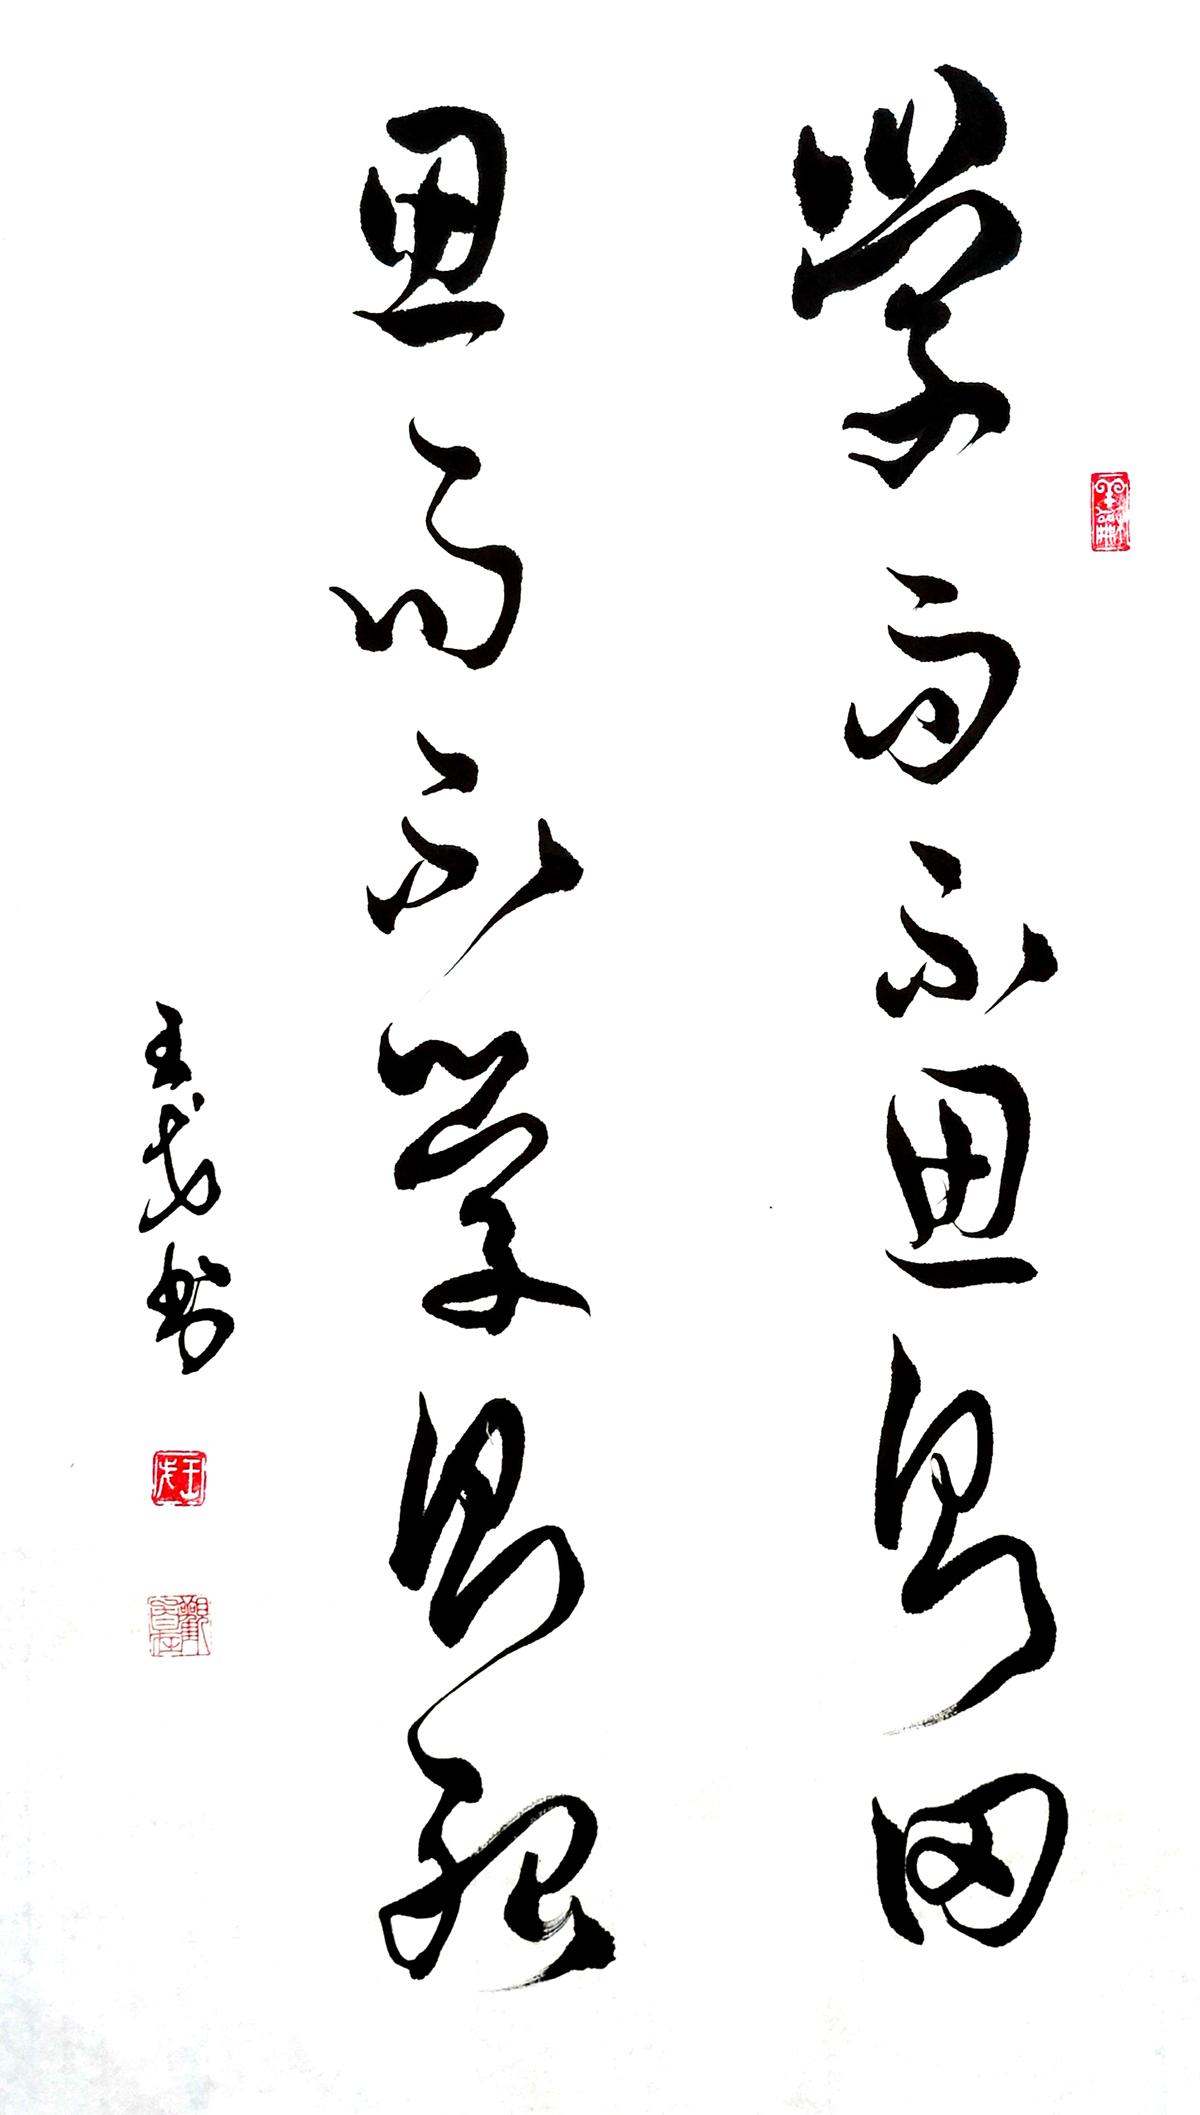 学而不思则罔
思而不学则殆
王 书